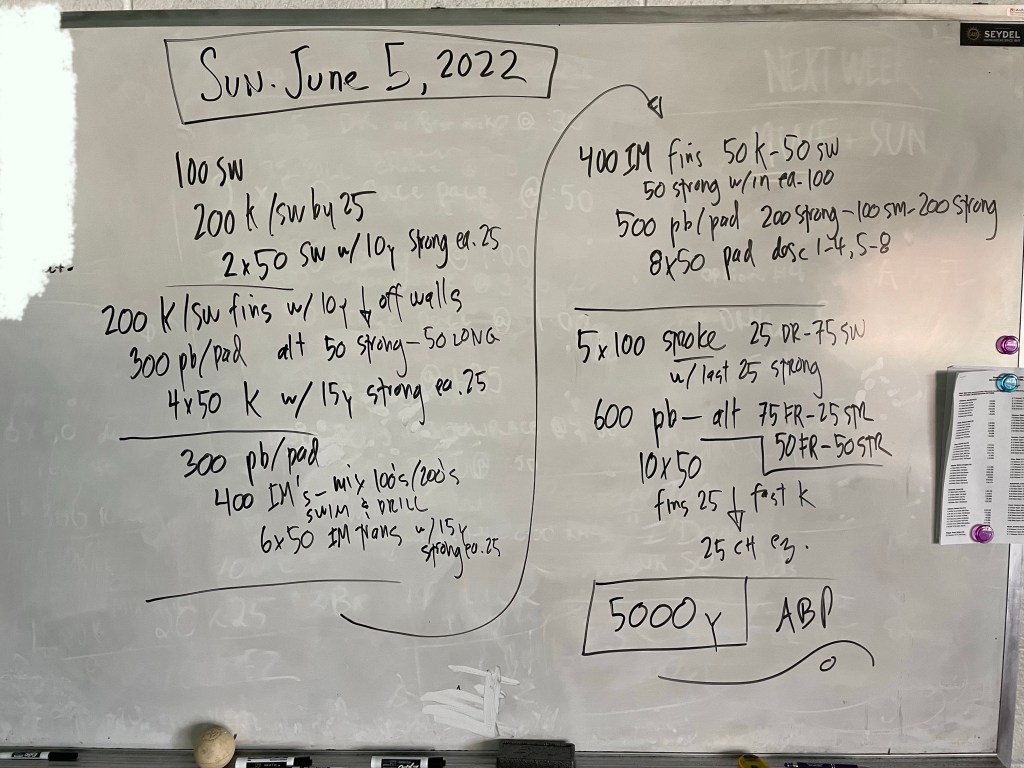 SUN. JUNE 5, 2022
100 SW
200 K/SW by 25
2x50 SW w/10y strong ea. 25
200 K/SW fins w/ 10y ↓ off walls
300 pb/pad alt 50 strong - 50 LONG
4x50 K w/ 15y strong ea. 25
300 pb/pad
400 IM's - mix 100's/200's
SWIM & DRILL
6x50 IM trans w/15y
strong ea. 25
400 IM fins 50 K - 50 SW
50 strong w/in ea. 100
500 pb/pad 200 strong - 100 sm - 200 strong
8x50 pad desc 1-4, 5-8
5x100 smoke 25 DR - 75 SW
w/ last 25 strong
600 pb - alt 75 FR - 25 STR
50 FR - 50 STR
10x50
fins 25 ↓ fast K
25 CH ez.
5000 Y ABP
SEYDEL
NEXT WEEK
SUN